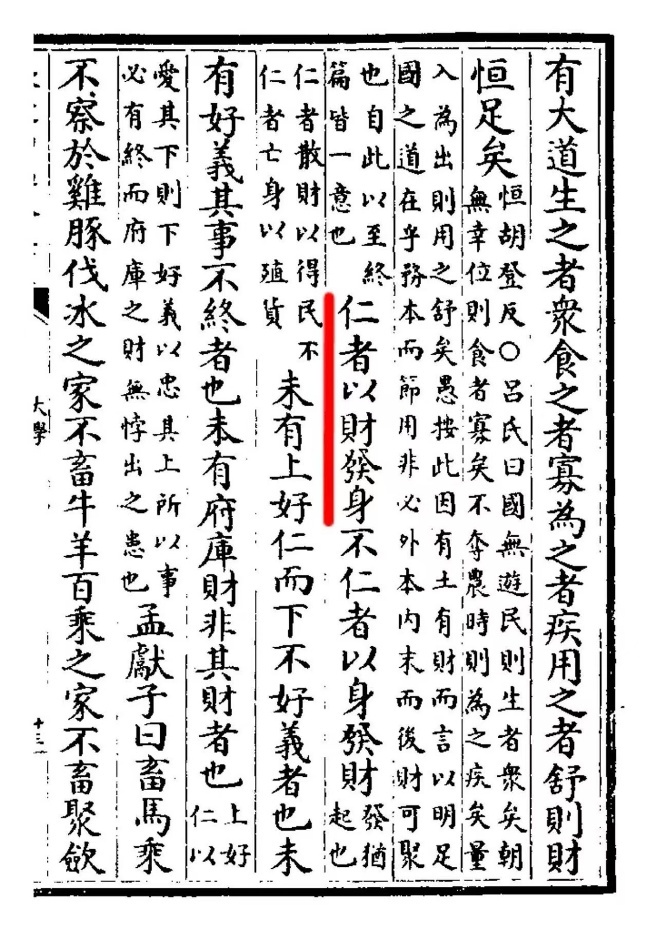 有大道生之者衆食之者寡為之者疾用之者舒則財
恒足矣
恒胡登反○吕氏曰國無遊民則生者衆矣朝
無幸位則食者寡矣不奪農時則為之疾矣量
入為出則用之舒矣愚按此因有土有財而言以明足
國之道在乎務本而節用非必外本内末而後財可聚
也自此以至終
篇皆一意也
仁者以財發身不仁者以身發財
發猶
起也
仁者散財以得民不
仁者亡身以殖貨
未有上好仁而下不好義者也未
有好義其事不終者也未有府庫財非其財者也
上好
仁以
愛其下則下好義以忠其上所以事
必有終而府庫之財無悖出之患也
孟獻子曰畜馬乘
不察於雞豚伐冰之家不畜牛羊百乘之家不畜聚斂
大學
十三